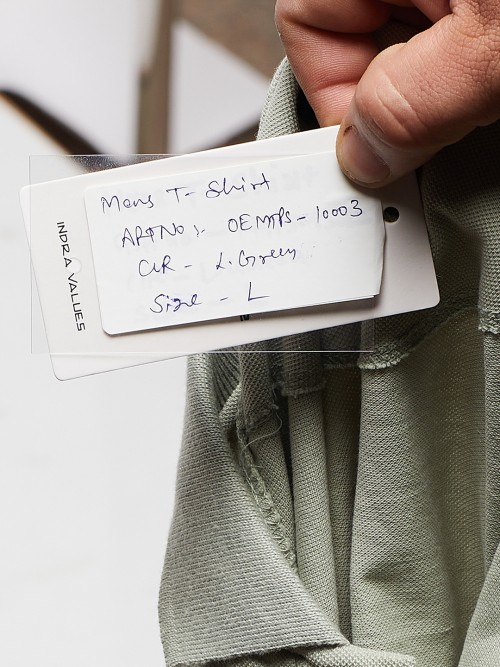 Mens T-Shirt
ARTNO :- OEMPS-10003
CLR - L.Green
Size - L
INDRA VALUES